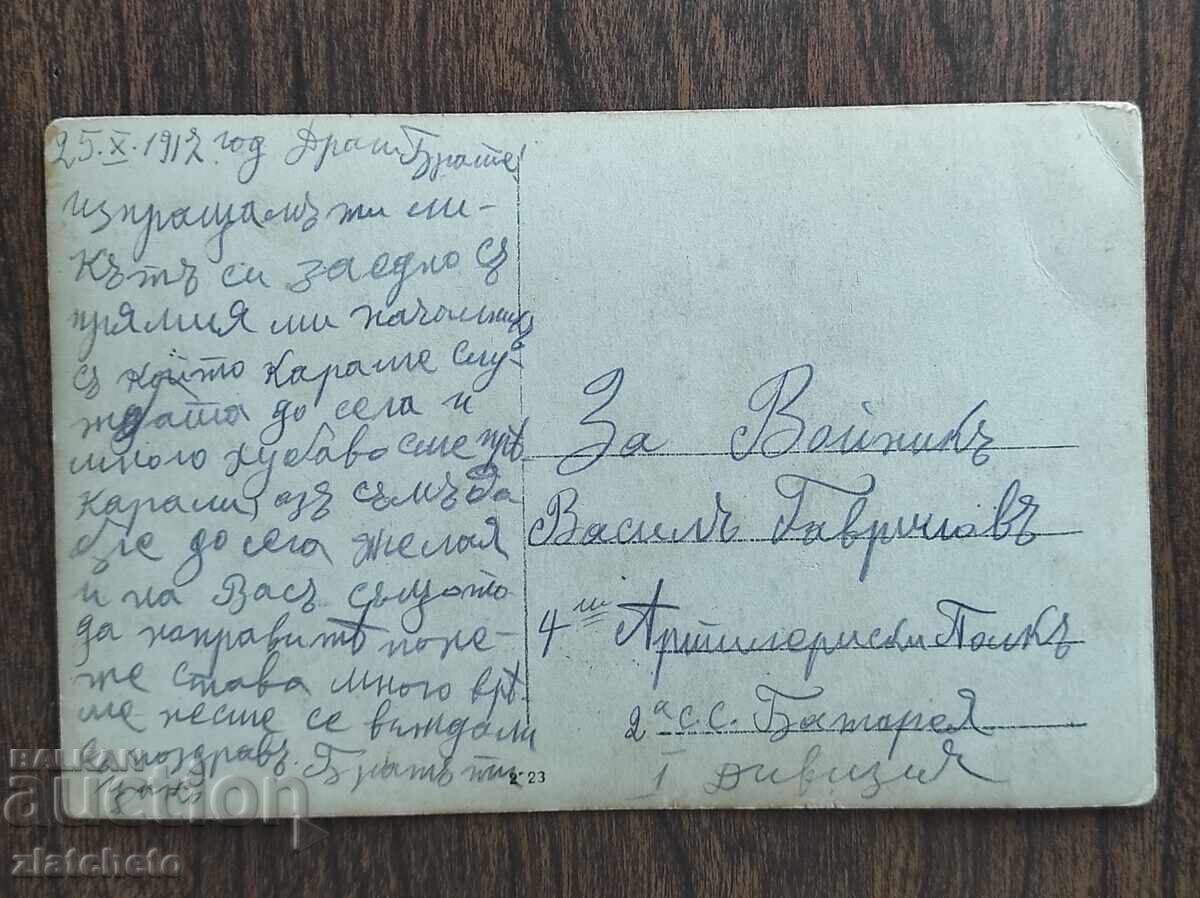 25.X.1912 год Драги Брате!
изпращамъ ти ли-
кътъ си заедно съ
прямия ми началникъ
съ който караме слу-
жбата до сега и
много хубаво сме прѣ
карали, азъ съмъ до
бре до сега желая
и на Васъ същото
да направитѣ поне-
же става много врѣ
ме несме се виждали
Братъ ти
За Войникъ
Василъ Гавриловъ
4ти Артилериски Полкъ
2а с.с. Батарея
I Дивизия
2 23
BALKAN
auction
zlatcheto